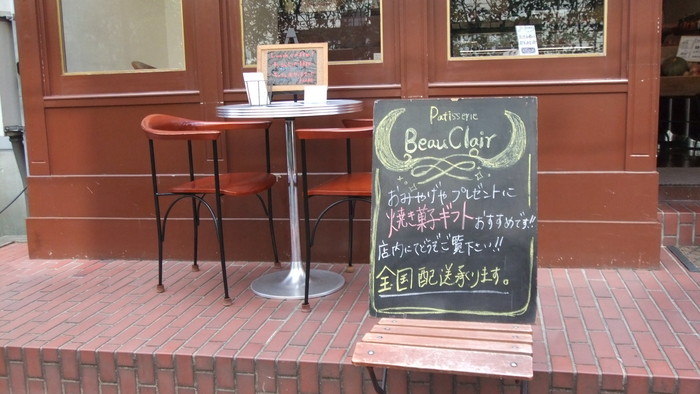 Patisserie
Beau Clair
おみやげやプレゼントに
焼き菓子ギフトおすすめです!!
店内にてどうぞご覧下さい!!
全国配送承ります。